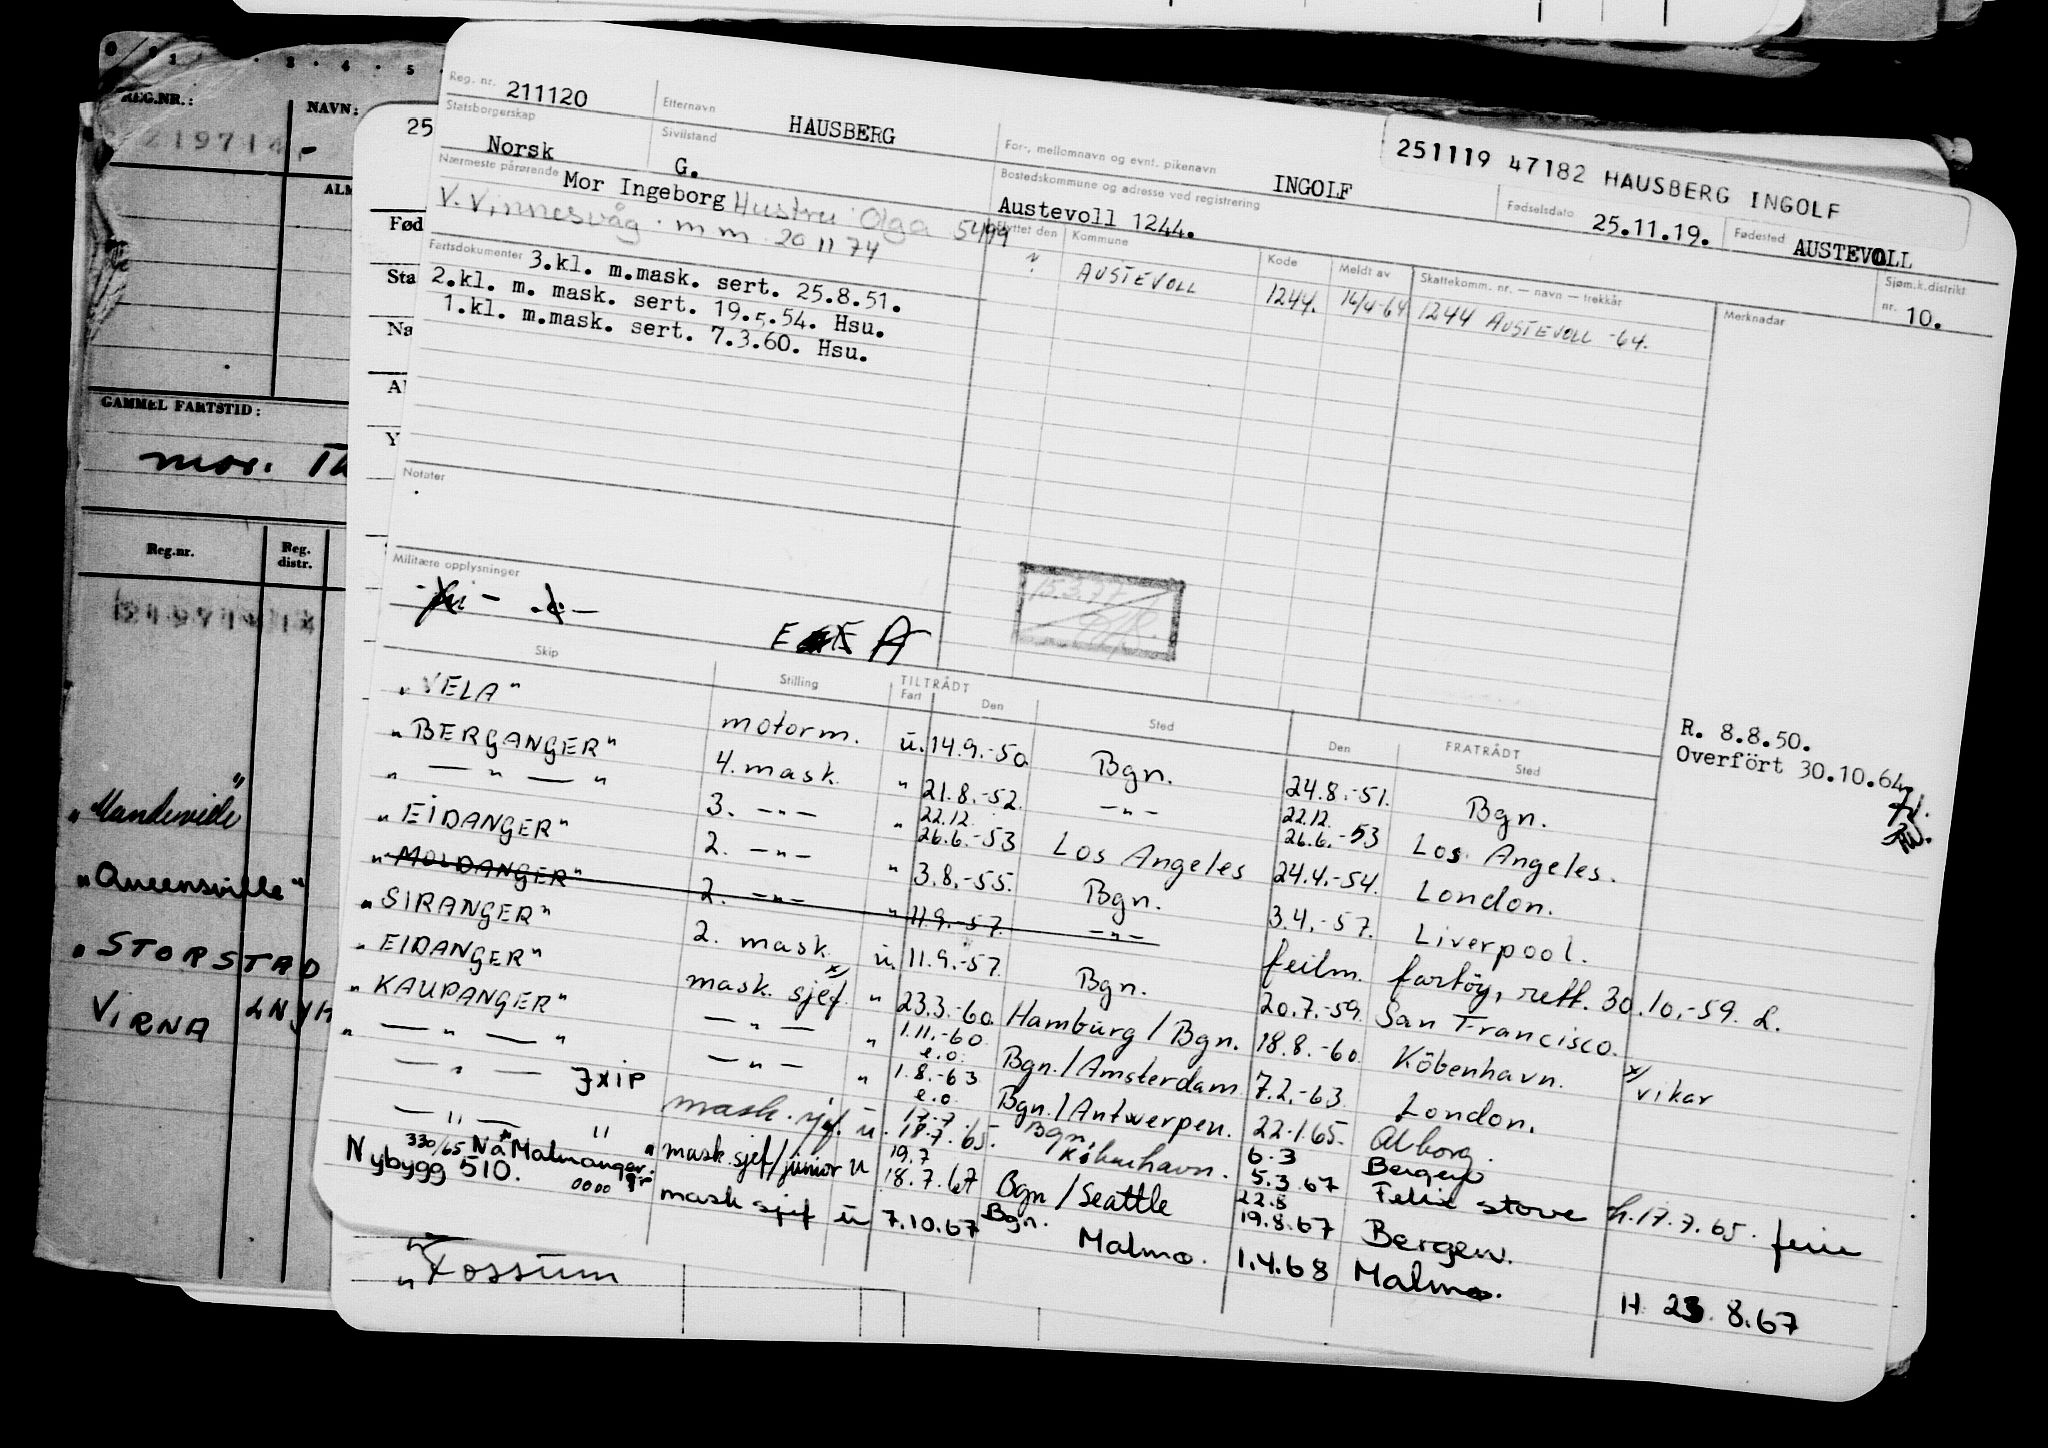 REG.NR.:
NAVN:
219714
GAMMEL FARTSTID:
mor.
Reg.nr.
Reg. distr.
"Mandeville"
"Queensville"
"STORSTAD
VIRNA LNJH
25
Reg. nr. 211120
Etternavn HAUSBERG
For-, mellomnavn og evnt. pikenavn INGOLF
251119 47182 HAUSBERG INGOLF
Statsborgerskap Norsk
Sivilstand G.
Bostedskommune og adresse ved registrering Austevoll 1244.
Fødselsdato 25.11.19.
Fødested AUSTEVOLL
Nærmeste pårørende Mor Ingeborg Hustru Olga 5499
V. Vinnesvåg. mm 20 11 74
Flyttet den
Kommune
Kode
Meldt av
Skattekomm. nr. — navn — trekkår
Merknader
Sjøm.k.distrikt nr. 10.
AUSTEVOLL 1244. 16/4-64 1244 AUSTEVOLL -64.
Fartsdokumenter 3.kl. m.mask. sert. 25.8.51.
2.kl. m. mask. sert. 19.5.54. Hsu.
1.kl. m.mask. sert. 7.3.60. Hsu.
Notater
Militære opplysninger
15.3.77
R. 8.8.50.
Overfört 30.10.64
Skip
Stilling
TILTRÅDT
Fart
Den
Sted
Den
FRATRÅDT
Sted
"VELA" motorm. u. 14.9.-50 Bgn. 24.8.-51. Bgn.
"BERGANGER" 4. mask. " 21.8.-52. — " — 22.12. Los Angeles.
" — " — " 3. — " — " 22.12. 26.6.-53 Los Angeles 26.6.-53 24.4.-54. London.
"EIDANGER" 2. — " — " 3.8.-55. Bgn. 3.4.-57. Liverpool.
"MOLDANGER" 2. — " — " 11.9.-57. — " — feilm. fartöy, rett. 30.10.-59. L.
"SIRANGER" 2. mask. u. 11.9.-57. Bgn. 20.7.-59. San Francisco.
"EIDANGER" mask. sjef x) " 23.3.-60. Hamburg / Bgn. 18.8.-60. Köbenhavn. x) vikar
"KAUPANGER" — " — " 1.11.-60. e.o. Bgn. / Amsterdam 7.2.-63. London.
" — " — " — " — " 1.8.-63 e.o. Bgn. / Antwerpen. 22.1.65. Alborg.
— " — JXIP mask. sjef. u. 17.7 18.7.65. Bgn. København. 6.3 5.3.67 Bergen h.17.7.65. ferie
— " — " mask. sjef/junior u 19.7 18.7.67 Bgn / Seattle 22.8 19.8.67 Bergen. H 23.8.67
330/65 Nå "Malmanger"
Nybygg 510. mask sjef u 7.10.67 Bgn. Malmo. 1.4.68 Malmo.
"Fossum